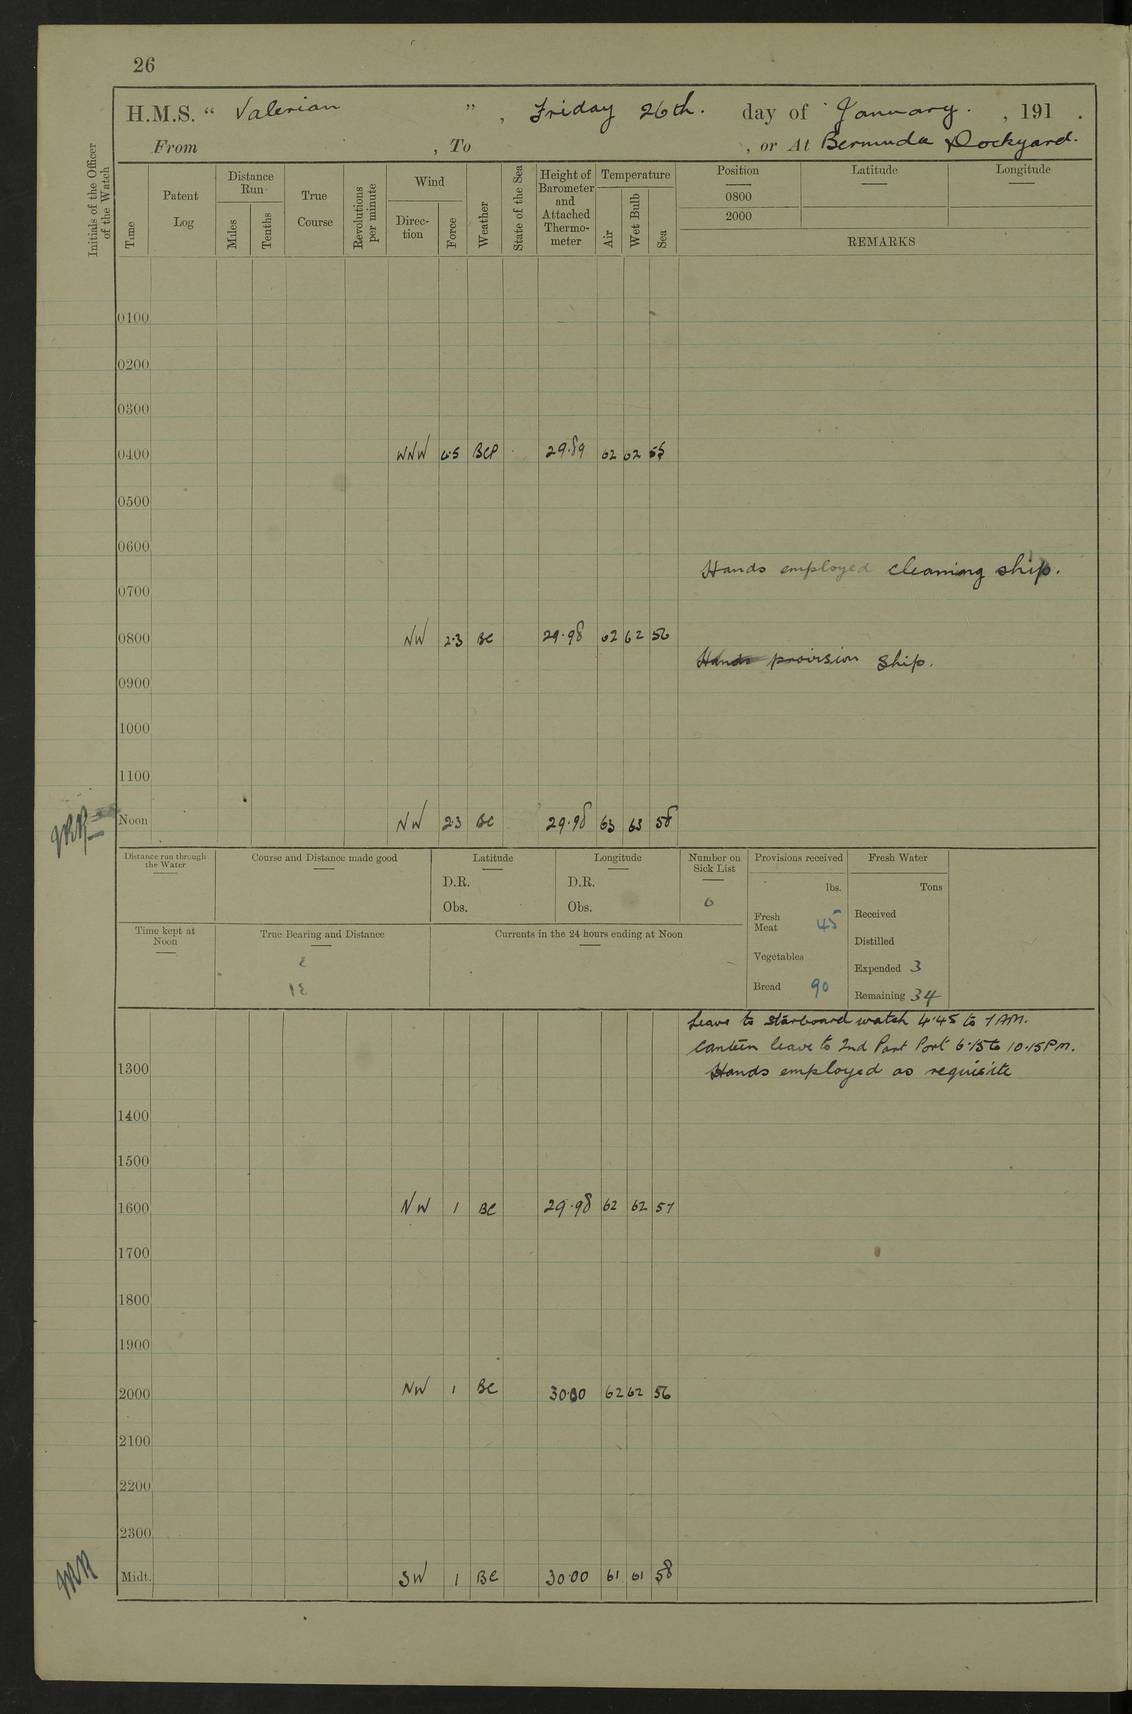 26
H.M.S. “ Valerian ” , Friday 26th. day of January. , 191 .
From , To , or At Bermuda Dockyard.
Initials of the Officer of the Watch
Time
Patent Log
Distance Run
Miles
Tenths
True Course
Revolutions per minute
Wind
Direc- tion
Force
Weather
State of the Sea
Height of Barometer and Attached Thermo- meter
Temperature
Air
Wet Bulb
Sea
Position Latitude Longitude
0800
2000
REMARKS
0100
0200
0300
0400 WNW 4.5 BCP 29.89 62 62 55
0500
0600
Hands employed cleaning ship.
0700
0800 NW 2.3 BC 29.98 62 62 56
Hands provision ship.
0900
1000
1100
Noon NW 2.3 BC 29.98 63 63 58
Distance run through the Water
Course and Distance made good
Latitude
D.R.
Obs.
Longitude
D.R.
Obs.
Number on Sick List
0
Provisions received
lbs.
Fresh Meat 45
Vegetables
Bread 90
Fresh Water
Tons
Received
Distilled
Expended 3
Remaining 34
Time kept at Noon
True Bearing and Distance
Currents in the 24 hours ending at Noon
Leave to starboard watch 4.45 to 7 AM.
Canteen leave to 2nd Part Port 6.15 to 10.15 PM.
Hands employed as requisite
1300
1400
1500
1600 NW 1 BC 29.98 62 62 57
1700
1800
1900
2000 NW 1 BC 30.00 62 62 56
2100
2200
2300
Midt. SW 1 BC 30.00 61 61 58